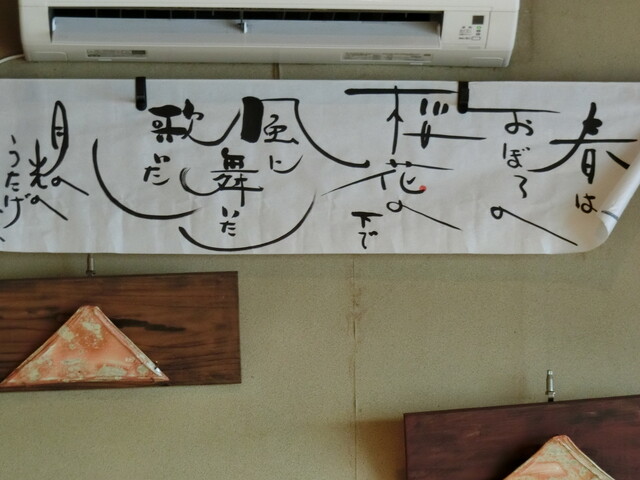 春は
おぼろの
桜花の
下で
風に
舞いた
歌いだ
月の
光の
うたげ